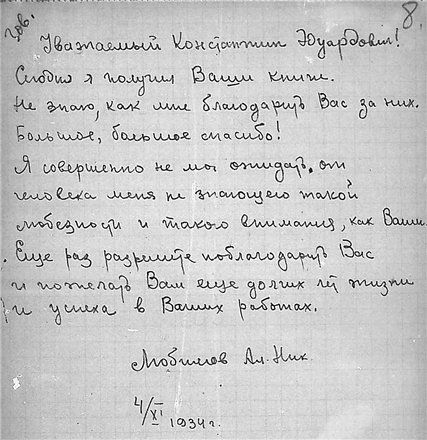 8.
Уважаемый Константин Эдуардович!
Сегодня я получил Ваши книги.
Не знаю, как мне благодарить Вас за них.
Большое, большое спасибо!
Я совершенно не мог ожидать, от
человека меня не знающего такой
любезности и такого внимания, как Ваши.
Еще раз разрешите поблагодарить Вас
и пожелать Вам еще долгих лет жизни
и успеха в Ваших работах.
Ал. Ник.
4/XI 1934 г.